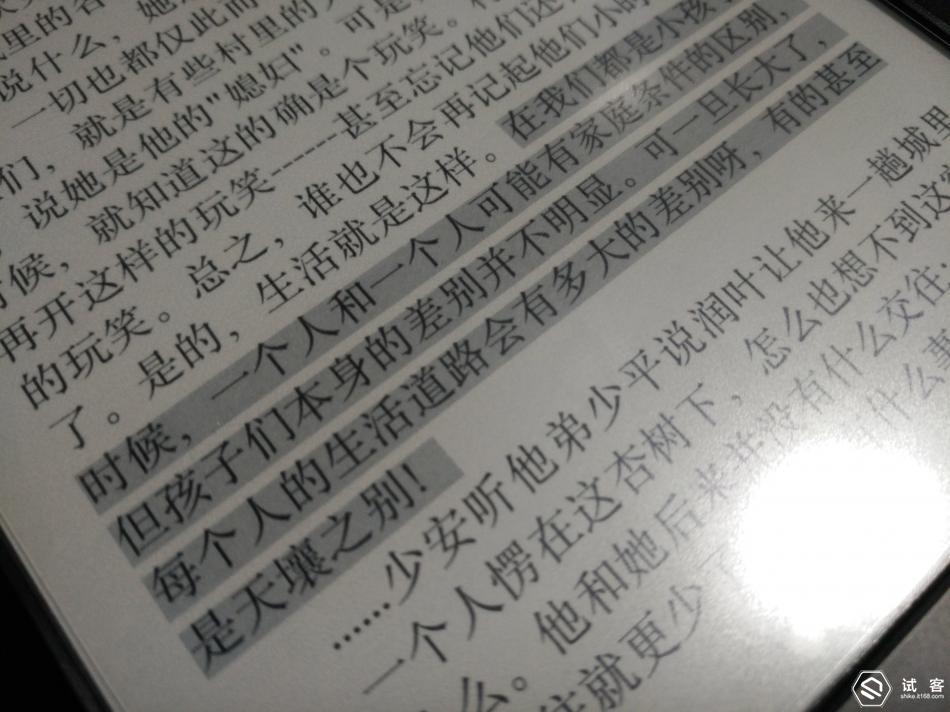 里的各
说什么，她
一切也都仅此而
们，就是有些村里的
说她是他的"媳妇"。可是
时候，就知道这的确是个玩笑。
再开这样的玩笑------甚至忘记他们还
的玩笑。总之，谁也不会再记起他们小时
了。是的，生活就是这样。在我们都是小孩
时候，一个人和一个人可能有家庭条件的区别，
但孩子们本身的差别并不明显。可一旦长大了，
每个人的生活道路会有多大的差别呀，有的甚至
是天壤之别！
......少安听他弟少平说润叶让他来一趟城里
一个人愣在这杏树下，怎么也想不到这
么。他和她后来并没有什么交往
往就更少了 什么事
试客
shike.it168.com